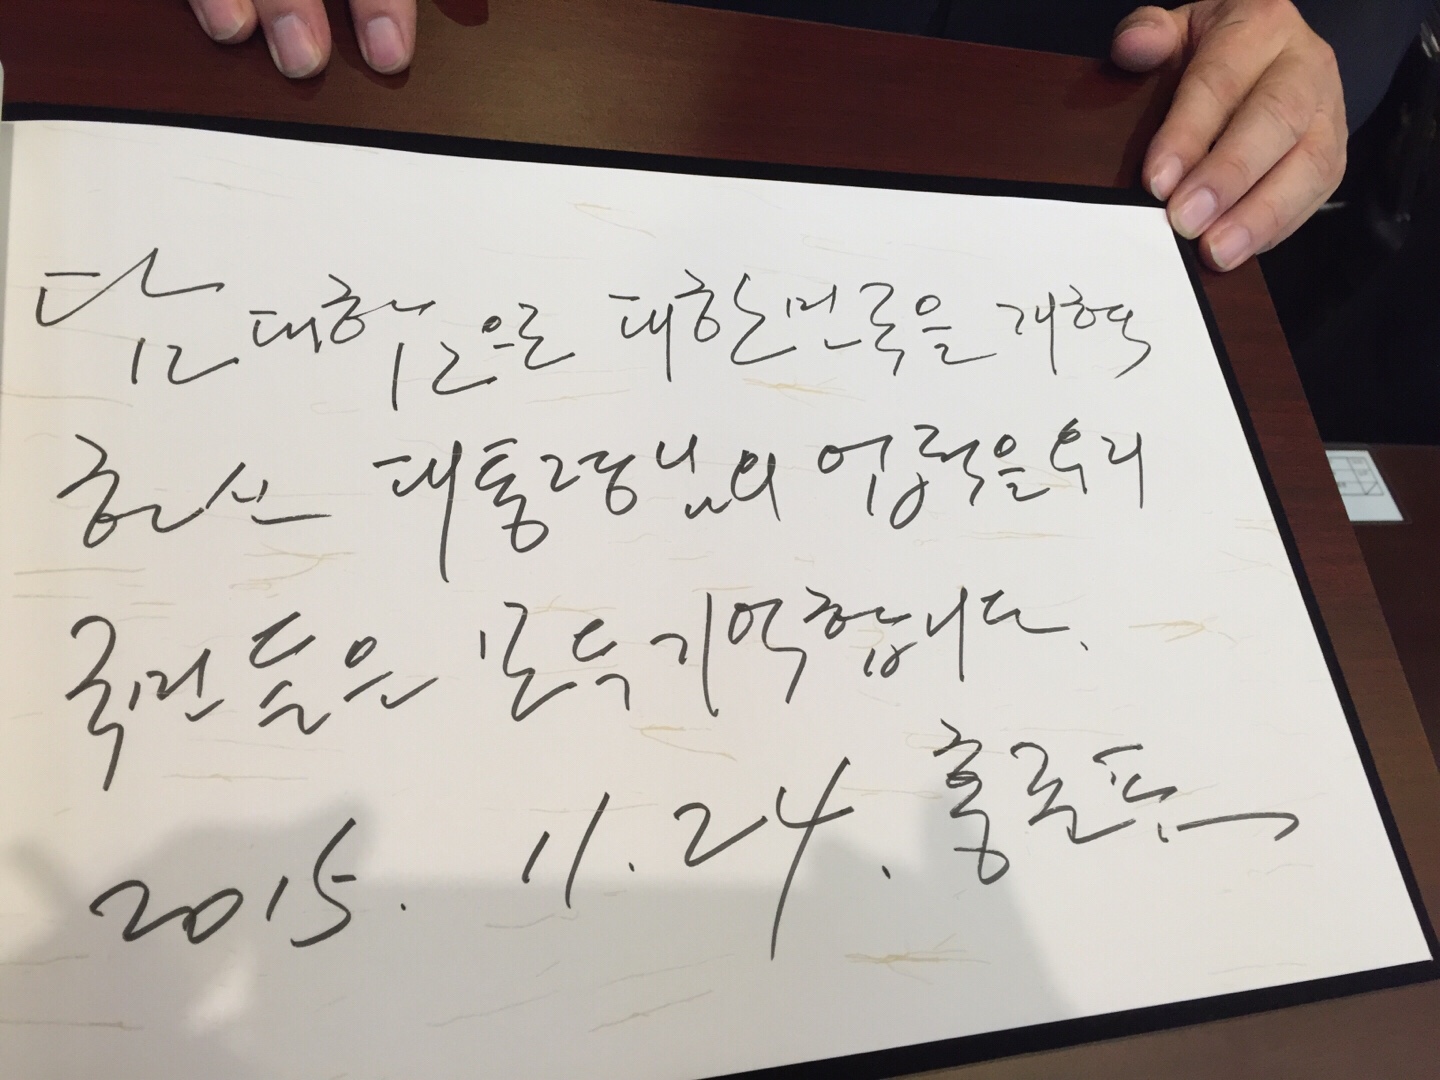 담대함으로 대한민국을 개혁
하신 대통령님의 업적을 우리
국민들은 모두 기억합니다.
2015. 11. 24. 홍준표